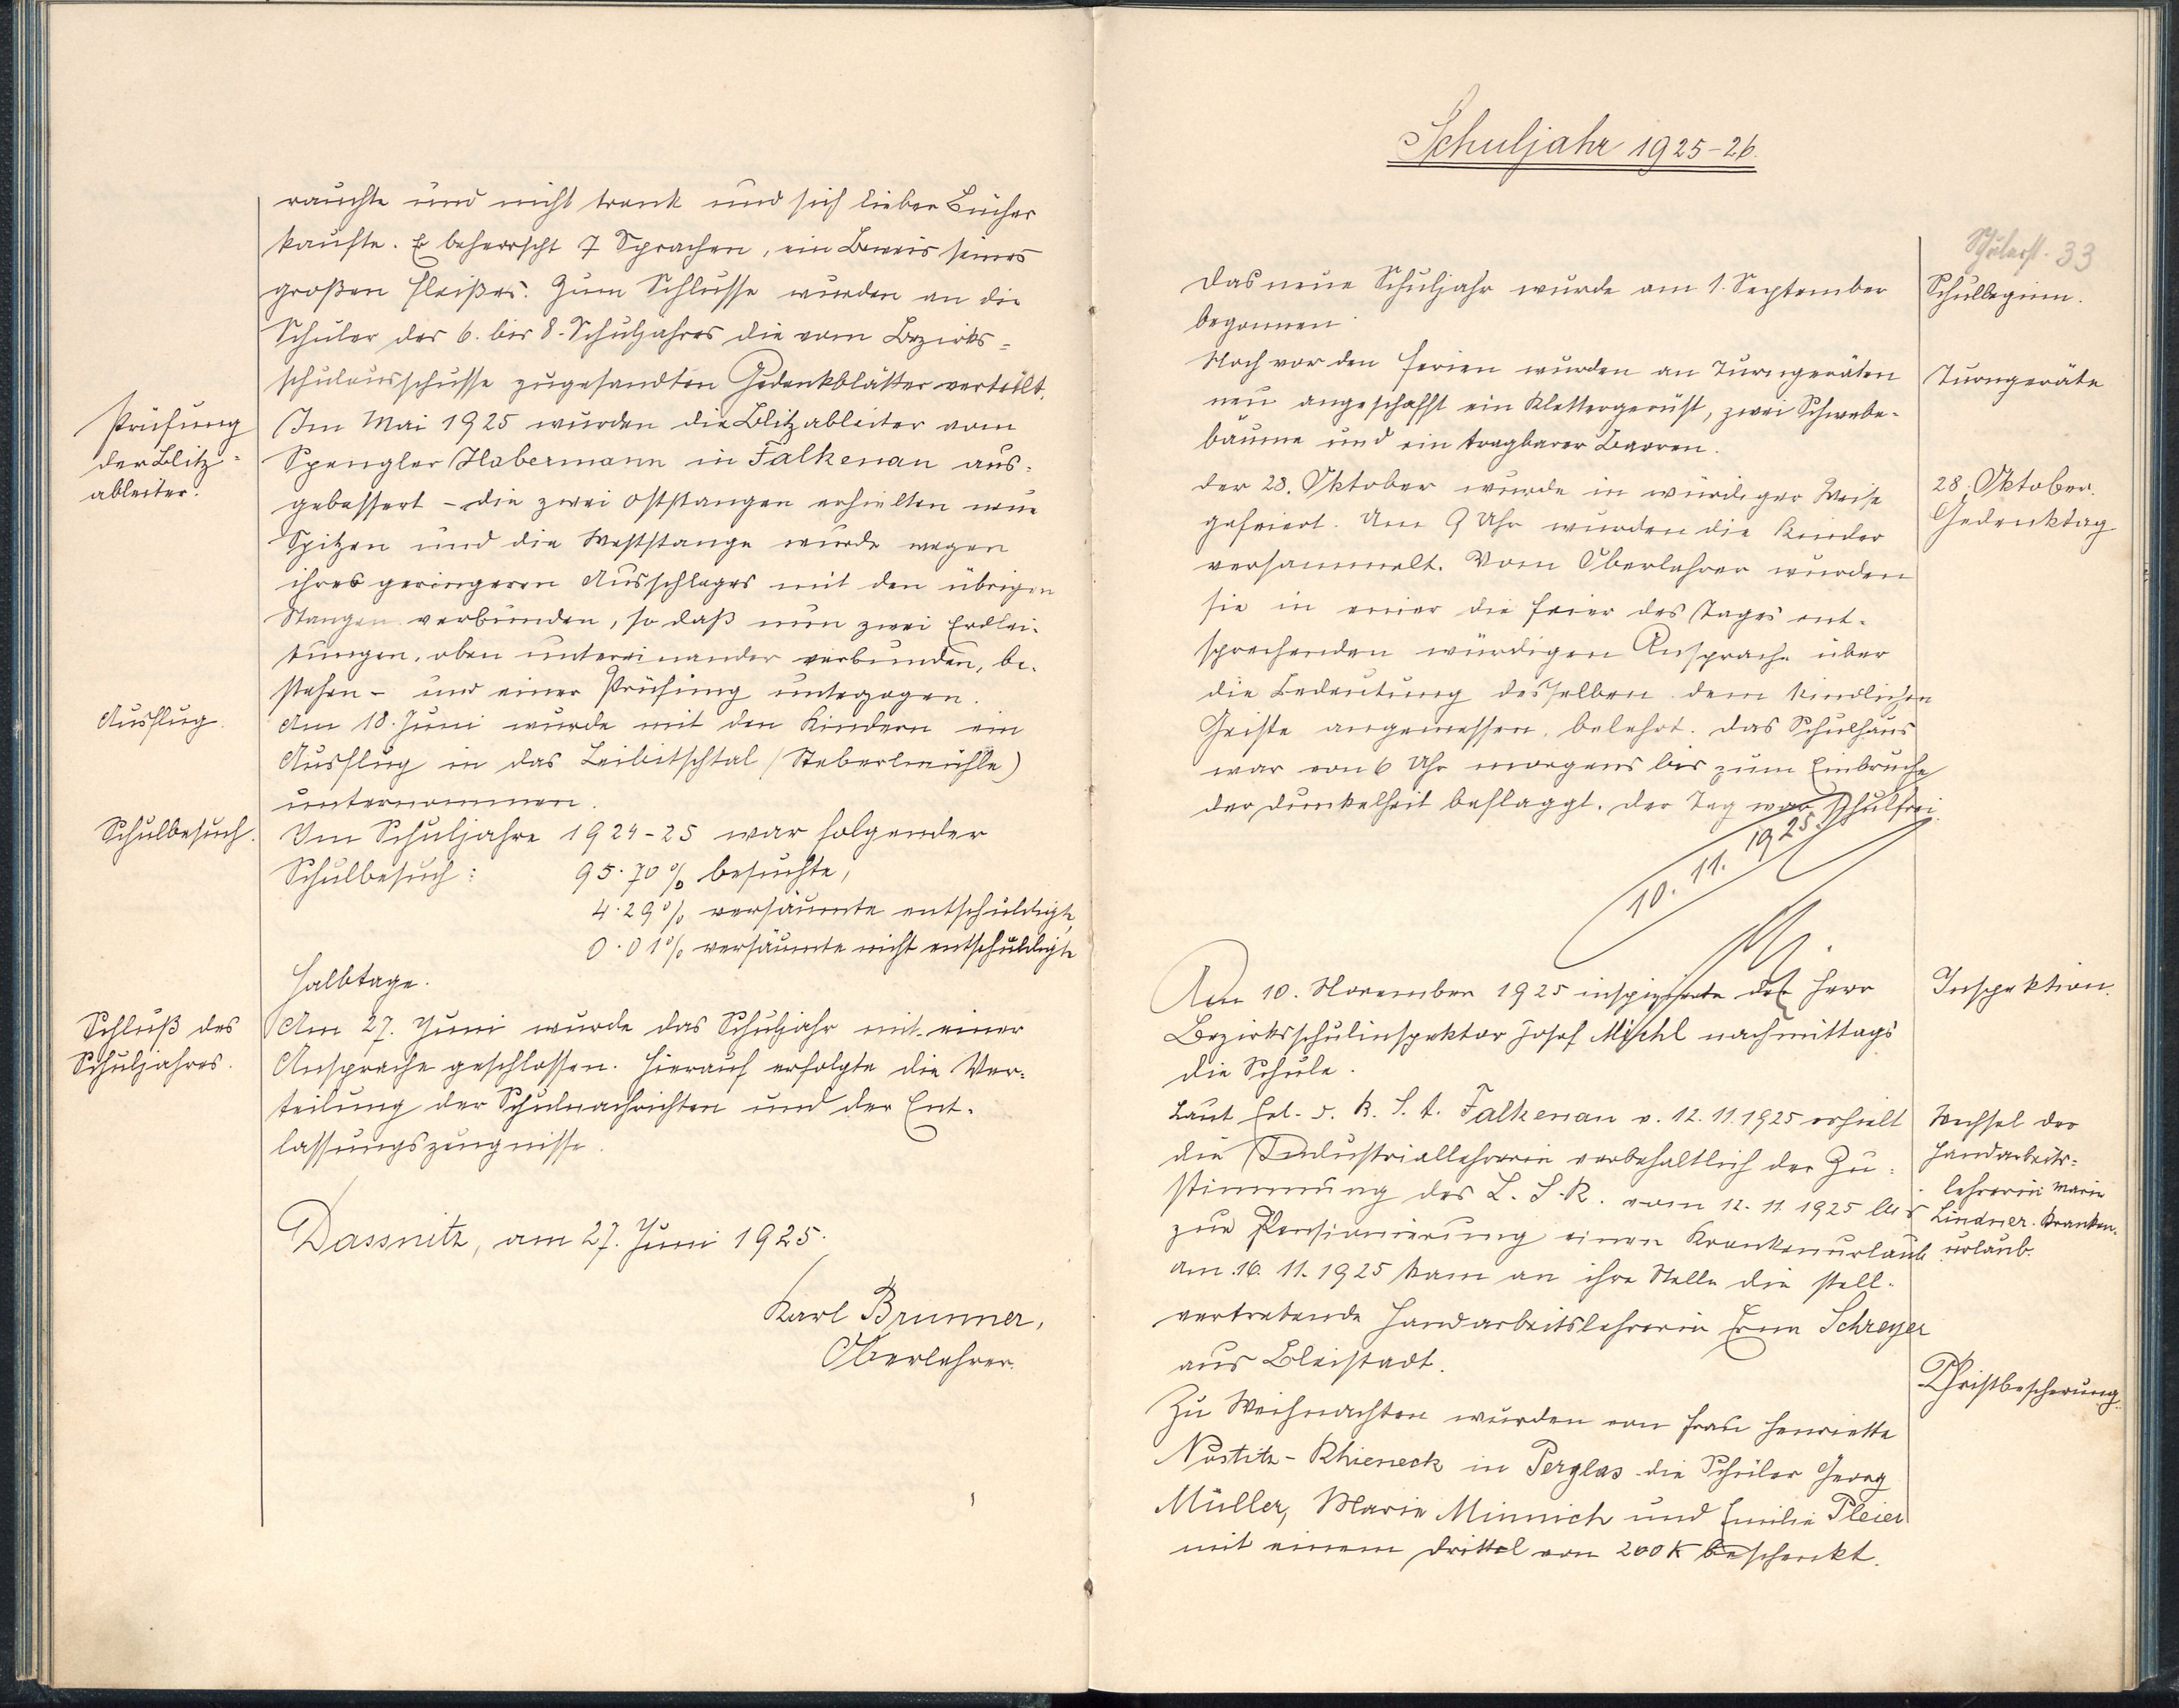 rauchte und nicht trank und sich lieber Bücher
kaufte. Er beherrscht 7 Sprachen, ein Beweis seines
großen Fleißes. Zum Schlusse wurden an die
Schüler des 6. bis 8. Schuljahres die vom Bezirks-
schulausschusse zugesandten Gedenkblätter verteilt.
Prüfung
der Blitz-
ableiter.
Im Mai 1925 wurden die Blitzableiter vom
Spengler Habermann in Falkenau aus-
gebessert – die zwei Oststangen erhielten neue
Spitzen und die Weststange wurde wegen
ihres geringeren Ausschlages mit den übrigen
Stangen verbunden, so daß nun zwei Erdlei-
tungen, oben untereinander verbunden, be-
stehen – und einer Prüfung unterzogen.
Ausflug.
Am 18. Juni wurde mit den Kindern ein
Ausflug in das Leibitschtal (Steberlmühle)
unternommen.
Schulbesuch.
Im Schuljahre 1924-25 war folgender
Schulbesuch: 95.70 % besuchte,
4.29 % versäumte entschuldigte,
0.01 % versäumte nicht entschuldigte
Halbtage.
Schluß des
Schuljahres.
Am 27. Juni wurde das Schuljahr mit einer
Ansprache geschlossen. Hierauf erfolgte die Ver-
teilung der Schulnachrichten und der Ent-
lassungszeugnisse.
Dassnitz, am 27. Juni 1925.
Karl Brunner,
Oberlehrer.
Schuljahr 1925-26.
33
Das neue Schuljahr wurde am 1. September
begonnen.
Schulbeginn.
Noch vor den Ferien wurden an Turngeräten
neu angeschafft ein Klettergerüst, zwei Schwebe-
bäume und ein tragbarer Barren.
Turngeräte
Der 28. Oktober wurde in würdiger Weise
gefeiert. Um 9 Uhr wurden die Kinder
versammelt. Vom Oberlehrer wurden
sie in einer die Feier des Tages ent-
sprechenden würdigen Ansprache über
die Bedeutung desselben dem kindlichen
Geiste angemessen, belehrt. Das Schulhaus
war von 6 Uhr morgens bis zum Einbruche
der Dunkelheit beflaggt. Der Tag war schulfrei.
28. Oktober.
Gedenktag
10. 11. 1925.
Am 10. November 1925 inspizierte der Herr
Bezirksschulinspektor Josef Mischl nachmittags
die Schule.
Inspektion.
Laut Erl. d. B. S. A. Falkenau v. 12. 11. 1925 erhielt
die Industriallehrerin vorbehaltlich der Zu-
stimmung des L. S. R. vom 12. 11. 1925 bis
zur Pensionierung einen Krankenurlaub.
Am 16. 11. 1925 kam an ihre Stelle die stell-
vertretende Handarbeitslehrerin Erna Schreyer
aus Bleistadt.
Wechsel der
Handarbeits-
lehrerin Marie
Lindner. Kranken-
urlaub.
Zu Weihnachten wurden von Frau Henriette
Nostitz-Rhieneck in Perglas die Schüler Georg
Müller, Marie Minnich und Emilie Pleier
mit einem Drittel von 200 K beschenkt.
Christbescherung.